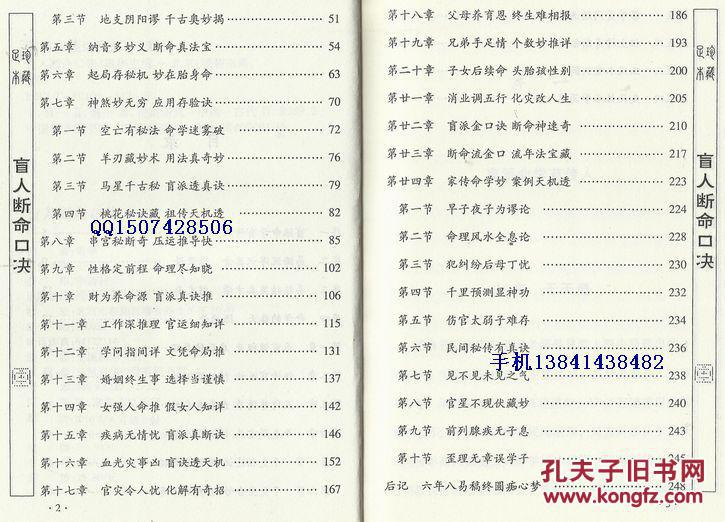 珍藏足本
盲人断命口决
第三节 地支阴阳谬 千古奥妙揭 51
第五章 纳音多妙义 断命真法宝 54
第六章 起局存秘机 妙在胎身命 63
第七章 神煞妙无穷 应用存验诀 70
第一节 空亡有秘法 命学迷雾破 72
第二节 羊刃藏妙术 用法真奇妙 76
第三节 马星千古秘 盲派透真诀 79
第四节 桃花秘诀藏 祖传天机透 82
QQ1507428506
第八章 串宫秘断奇 压运推导快 85
第九章 性格定前程 命理尽知晓 102
第十章 财为养命源 盲派真诀推 106
第十一章 工作深推理 官运细知详 115
第十二章 学问指间详 文凭命局推 131
第十三章 婚姻终生事 选择当谨慎 137
第十四章 女强人命推 假女人知详 142
第十五章 疾病无情忧 盲派真断诀 146
第十六章 血光灾事凶 盲诀透天机 152
第十七章 官灾令人忧 化解有奇招 167
· 2 ·
第十八章 父母养育恩 终生难相报 186
第十九章 兄弟手足情 个数妙推详 193
第二十章 子女后续命 头胎孩性别 200
第廿一章 消业调五行 化灾改人生 205
第廿二章 盲派金口诀 断命神速奇 210
第廿三章 断命流金口 流年法宝藏 217
第廿四章 家传命学妙 案例天机透 223
第一节 早子夜子为谬论 224
第二节 命理风水全息论 228
第三节 犯纠纷后母丁忧 230
第四节 千里预测显神功 232
第五节 伤官太弱子难存 234
第六节 民间秘传有真诀 236
手机13841438482
第七节 见不见未见之气 238
第八节 官星不现伏藏妙 240
第九节 前列腺疾无子息 243
第十节 歪理无章误学子 245
后记 六年八易稿终圆痴心梦 248
· 3 ·
珍藏足本
盲人断命口决
孔夫子旧书网
www.kongfz.com